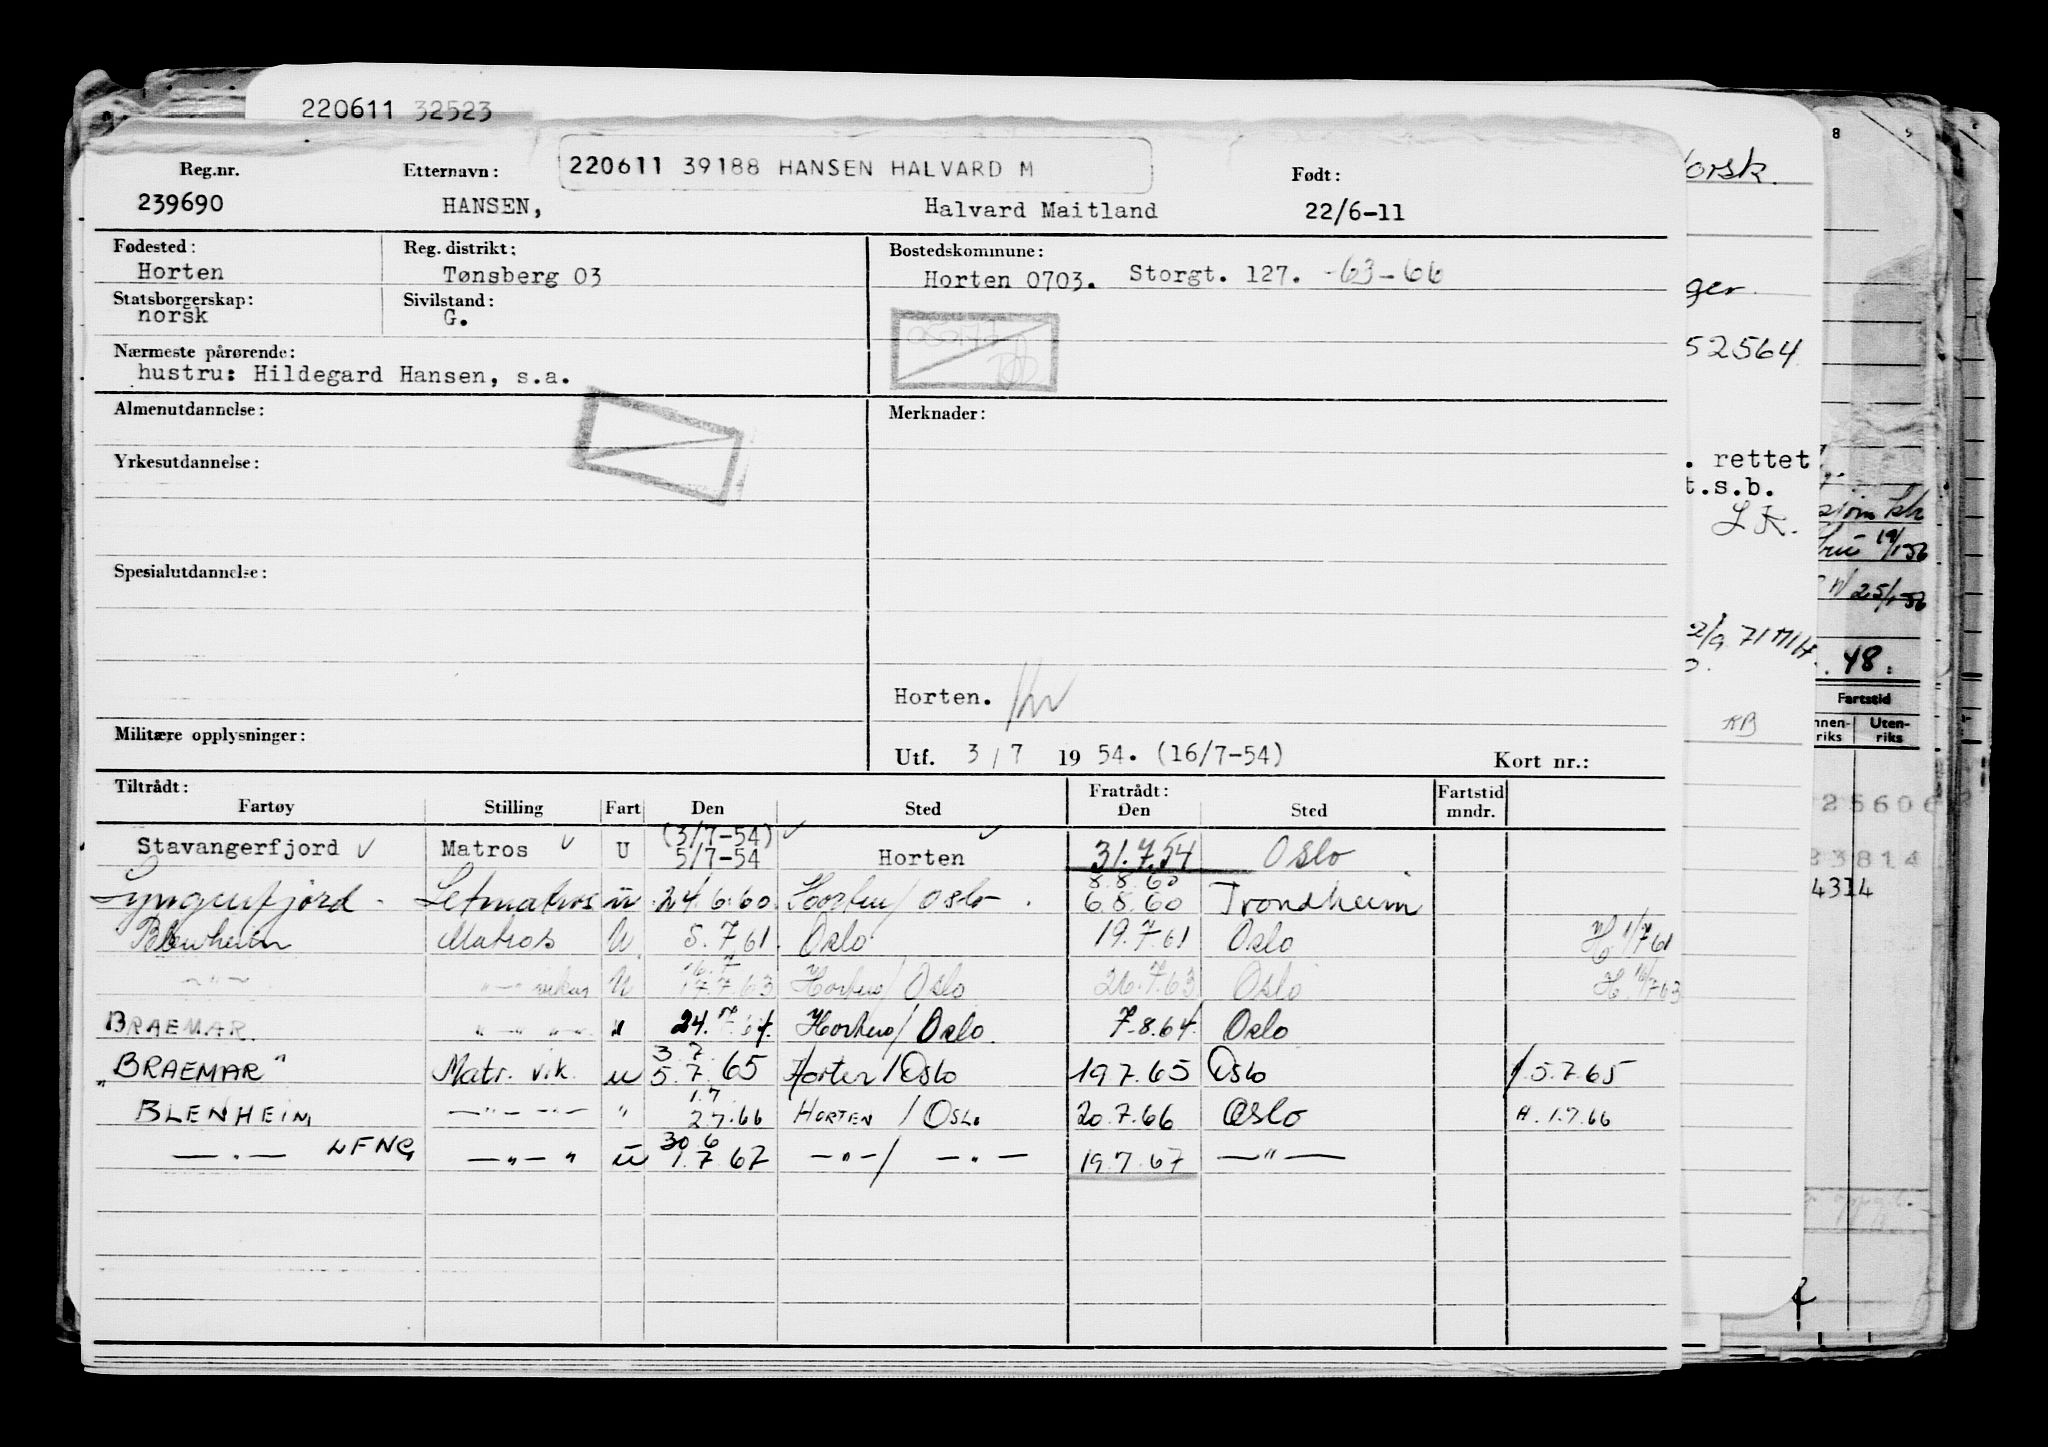 220611 32523
220611 39188 HANSEN HALVARD M
Reg.nr. Etternavn: Født:
239690 HANSEN, Halvard Maitland 22/6-11
Fødested: Reg. distrikt: Bostedskommune:
Horten Tønsberg 03 Horten 0703. Storgt. 127. -63-66
Statsborgerskap: Sivilstand:
norsk G.
Nærmeste pårørende:
hustru: Hildegard Hansen, s.a.
Almenutdannelse: Merknader:
Yrkesutdannelse:
Spesialutdannelse:
Horten.
Militære opplysninger:
Utf. 3/7 1954. (16/7-54) Kort nr.:
Tiltrådt: Fratrådt: Fartstid
Fartøy Stilling Fart Den Sted Den Sted mndr.
(3/7-54)
Stavangerfjord Matros U 5/7-54 Horten 31.7.54 Oslo
8.8.60
Lyngenfjord Letmatros u 24.6.60 Horten/Oslo 6.8.60 Trondheim
Blenheim Matros U 5.7.61 Oslo 19.7.61 Oslo H 1/7 61
16.7
—"— —"— vikar U 17.7.63 Horten/Oslo 26.7.63 Oslo H. 16/7 63
BRAEMAR —"— —"— " 24.7.64. Horten/Oslo. 7.8.64. Oslo
3.7.
"BRAEMAR" Matr. vik. u 5.7.65 Horten/Oslo 19.7.65 Oslo 5.7.65
1.7
BLENHEIM —"— —"— " 2.7.66 HORTEN/OSLO 20.7.66 OSLO H. 1.7.66
30 6
—"— LFNG —"— " u 1.7.67 —"—/ —"— 19.7.67 —"—
orsk.
ger.
52564
. rettet
t.s.b.
L K.
2/9 71 MH.
KB
8
19/1-56
25/1-56
48.
Fartstid
nnen- Uten-
riks riks
25606
83814
4314